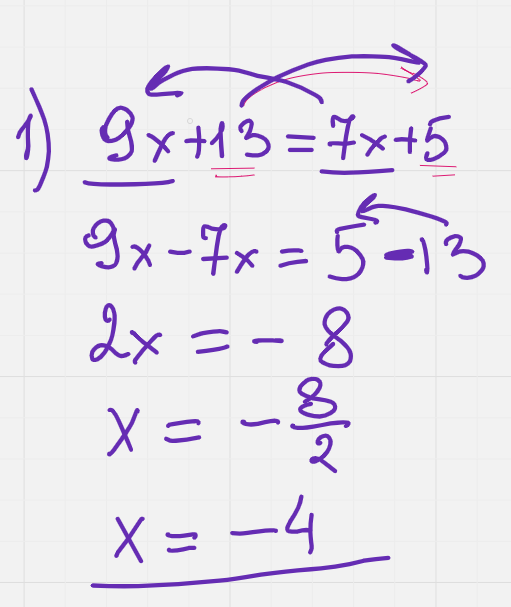 1) 9x+13=7x+5
9x-7x=5-13
2x=-8
x=-8/2
x=-4